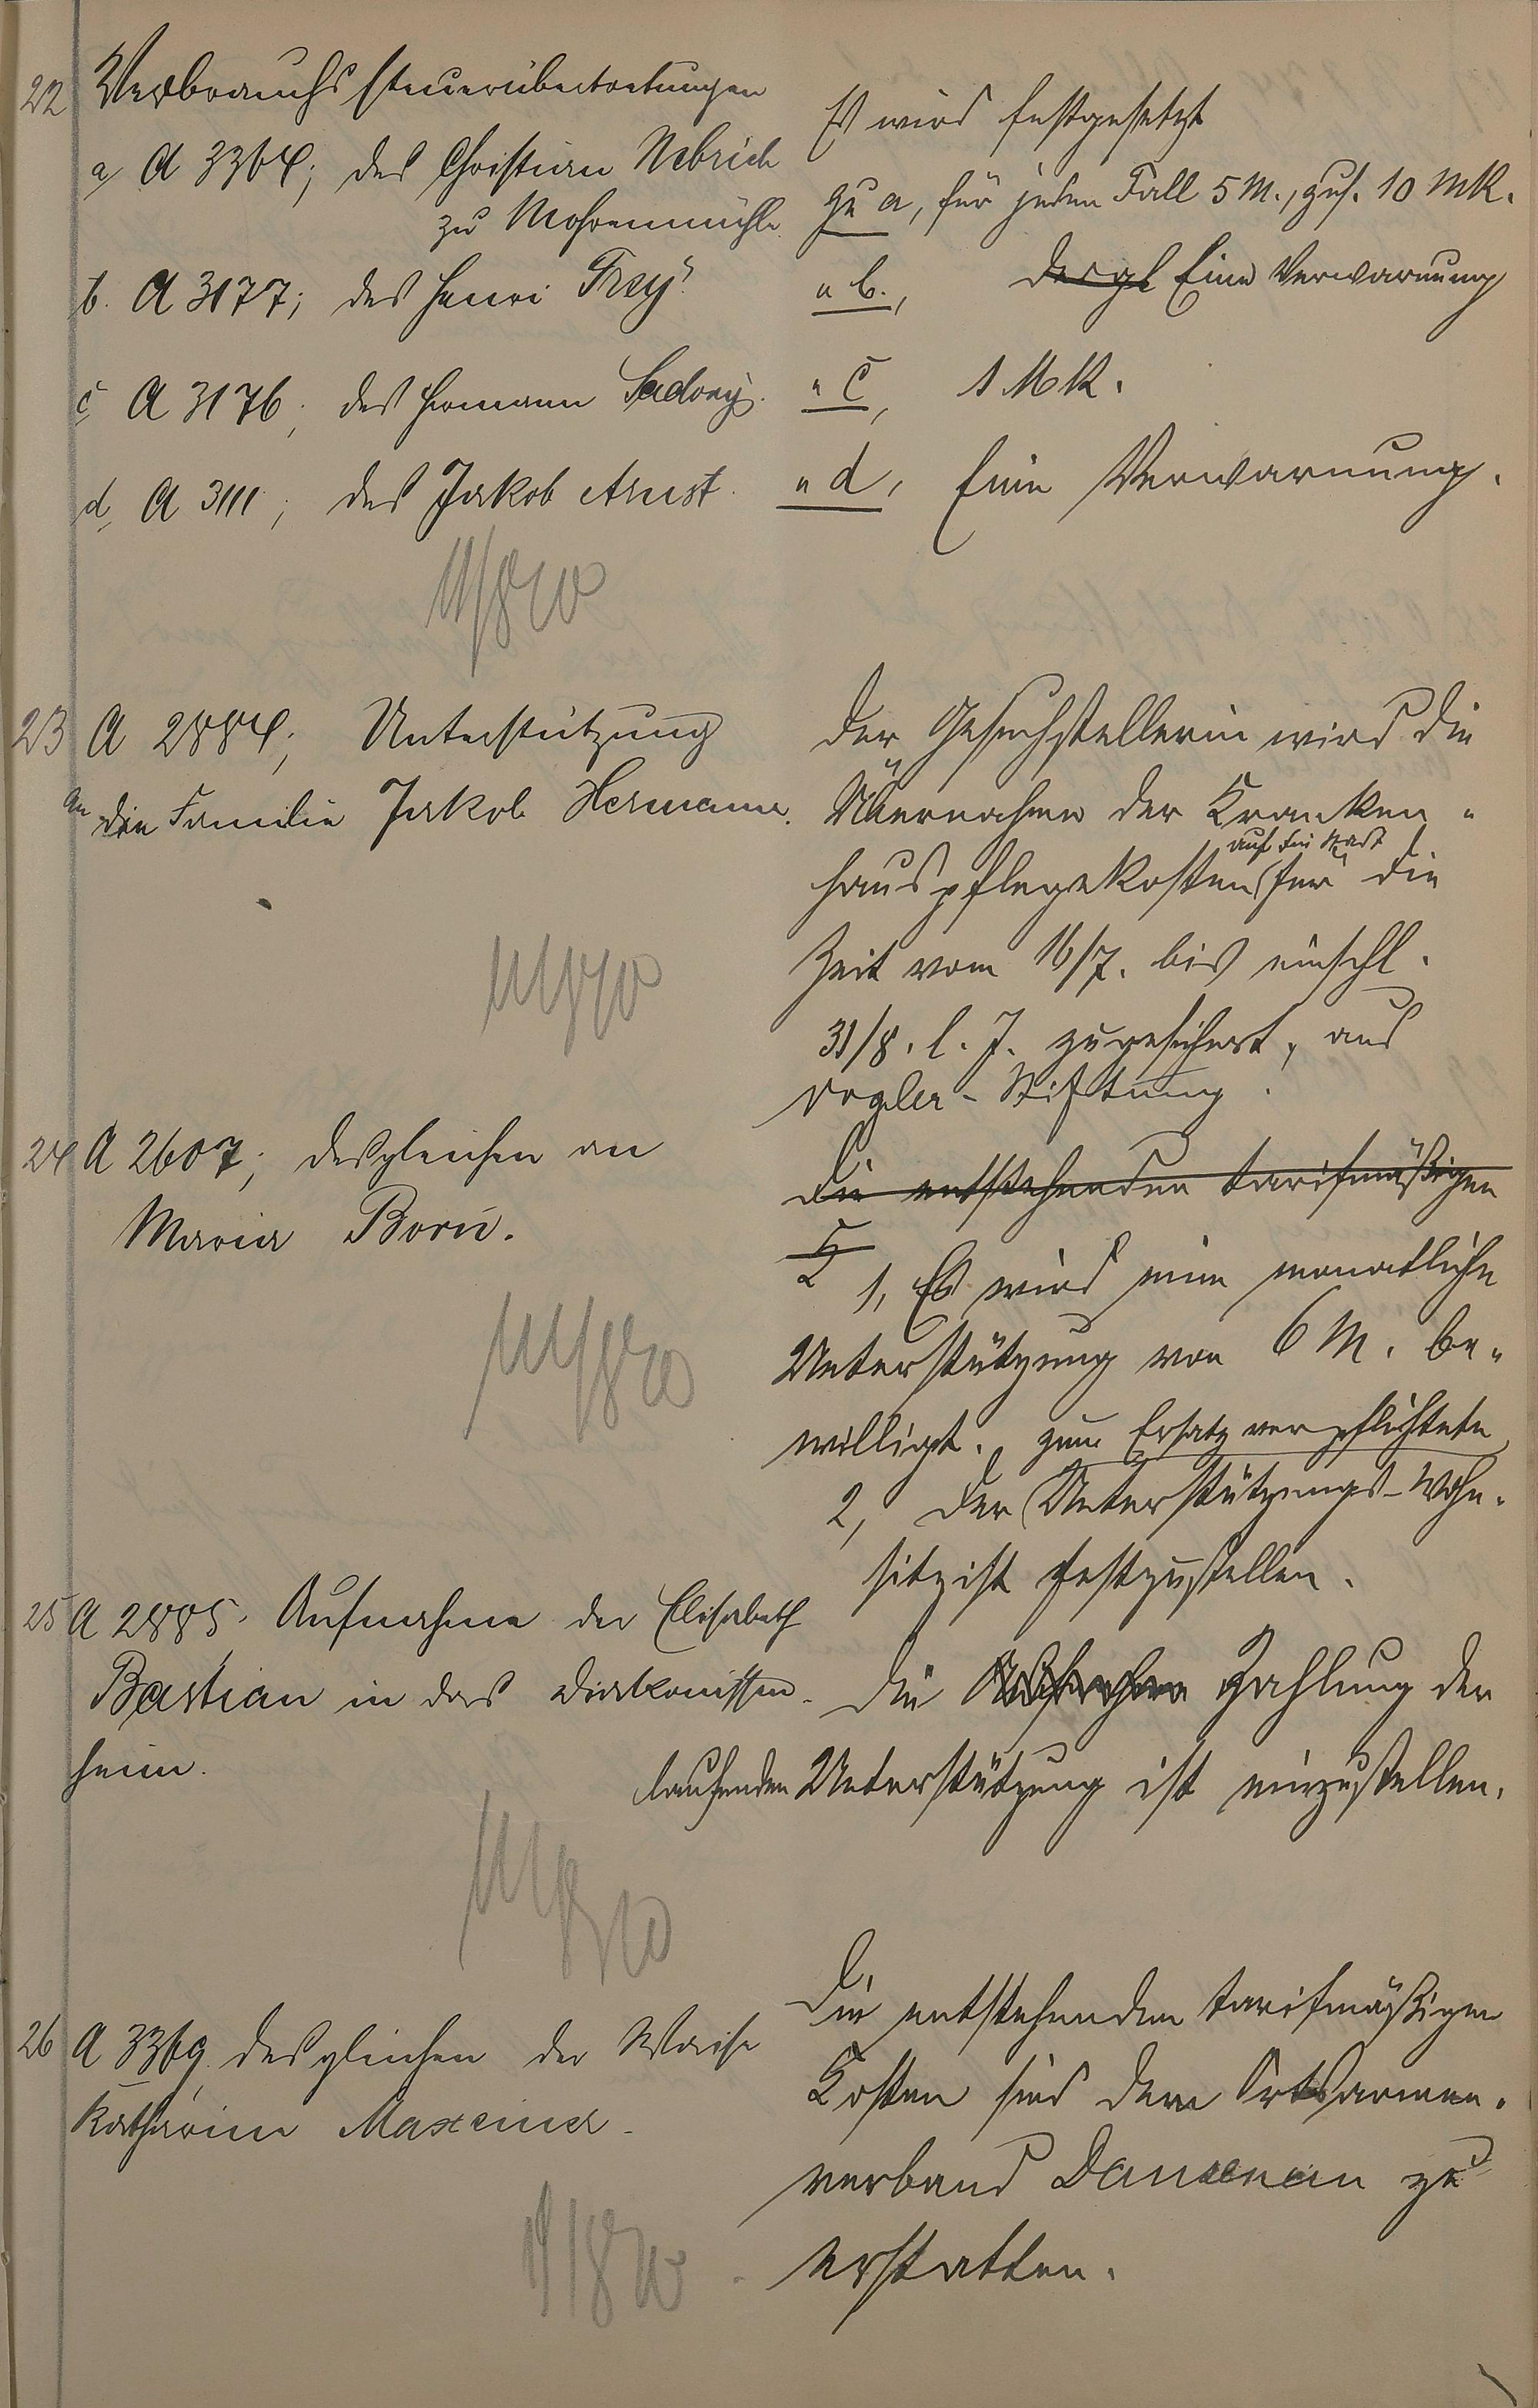 22 Verbrauchssteuerübertretungen
a, A 3364; des Christian Nebrich
zu Mohrenmühle.
b. A 3177; des Henri Frey.
c, A 3176; des Hermann Sadony.
d, A 3111; des Jakob Arnst.
Es wird festgesetzt
zu a, für jeden Fall 5 M., zus. 10 Mk.
" b., desgl Eine Verwarnung
" c, 1 Mk.
" d, Eine Verwarnung.
23 A 2884; Unterstützung
an die Familie Jakob Hermann.
Der Gesuchstellerin wird die
Übernahme der Kranken-
auf die Stadt
hauspflegekosten für die
Zeit vom 16/7. bis einschl.
31/8. l. J. zugesichert, aus
Vogler-Stiftung.
24 A 2607; desgleichen an
Maria Born.
Die entstehenden tarifmäßigen
K
1, Es wird eine monatliche
Unterstützung von 6 M. be-
willigt. zum Ersatz verpflichtete
2, Der Unterstützungs-Wohn-
sitz ist festzustellen.
25 A 2885. Aufnahme der Elisabeth
Bastian in das Diakonissen-
heim.
Die Zahlung der
laufenden Unterstützung ist einzustellen.
26 A 3369 desgleichen der Waise
Katharina Maxeiner.
Die entstehenden tarifmäßigen
Kosten sind dem Ortsarmen-
verband Dausenau zu
erstatten.